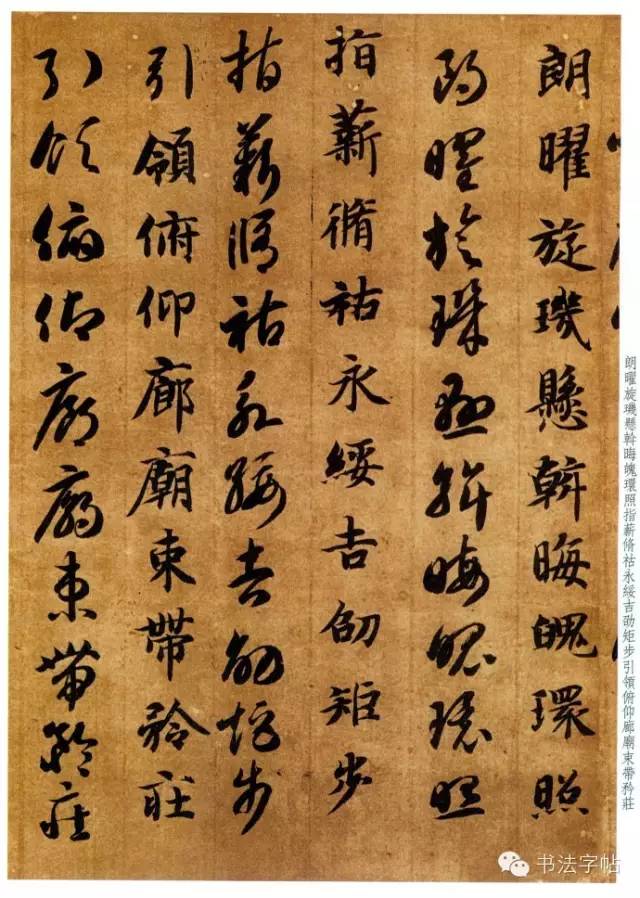 朗曜旋璣懸斡晦魄環照
朗曜旋璣懸斡晦魄環照
指薪脩祜永綏吉劭矩步
指薪脩祜永綏吉劭矩步
引領俯仰廊廟束帶矜莊
引領俯仰廊廟束帶矜莊
朗曜旋璣懸斡晦魄環照指薪脩祜永綏吉劭矩步引領俯仰廊廟束帶矜莊
书法字帖